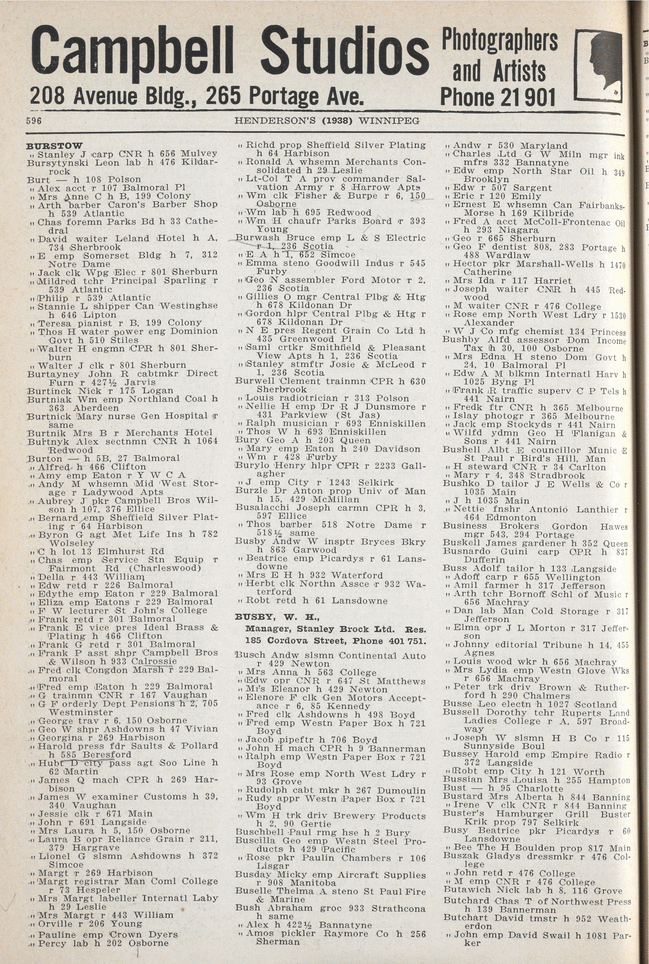 Campbell Studios
Photographers
and Artists
208 Avenue Bldg., 265 Portage Ave.
Phone 21 901
596
HENDERSON'S (1938) WINNIPEG
BURSTOW
„ Stanley J carp CNR h 656 Mulvey
Bursytynski Leon lab h 476 Kildar-
rock
Burt — h 108 Polson
„ Alex acct r 107 Balmoral Pl
„ Mrs Anne C h B, 199 Colony
„ Arth barber Caron's Barber Shop
h 539 Atlantic
„ Chas foremn Parks Bd h 33 Cathe-
dral
„ David waiter Leland Hotel h A,
734 Sherbrook
„ E emp Somerset Bldg h 7, 312
Notre Dame
„ Jack clk Wpg Elec r 801 Sherburn
„ Mildred tchr Principal Sparling r
539 Atlantic
„ Philip r 539 Atlantic
„ Stannie L shipper Can Westinghse
h 646 Lipton
„ Teresa pianist r B, 199 Colony
„ Thos H water power eng Dominion
Govt h 510 Stiles
„ Walter H engmn CPR h 801 Sher-
burn
„ Walter J clk r 801 Sherburn
Burtayney John R cabtmkr Direct
Furn r 427½ Jarvis
Burtinck Nick r 175 Logan
Burtniak Wm emp Northland Coal h
363 Aberdeen
Burtnick Mary nurse Gen Hospital r
same
Burtnik Mrs B r Merchants Hotel
Burtnyk Alex sectnmn CNR h 1064
Redwood
Burton — h 5B, 27 Balmoral
„ Alfred h 466 Clifton
„ Amy emp Eaton r Y W C A
„ Andy M whsemn Mid West Stor-
age r Ladywood Apts
„ Aubrey J pkr Campbell Bros Wil-
son h 107, 376 Ellice
„ Bernard emp Sheffield Silver Plat-
ing r 64 Harbison
„ Byron G agt Met Life Ins h 782
Wolseley
„ C h lot 13 Elmhurst Rd
„ Chas emp Service Stn Equip r
Fairmont Rd (Charleswood)
„ Della r 443 William
„ Edw retd r 226 Balmoral
„ Edythe emp Eaton r 229 Balmoral
„ Eliza emp Eatons r 229 Balmoral
„ F W lecturer St John's College
„ Frank retd r 301 Balmoral
„ Frank E vice pres Ideal Brass &
Plating h 466 Clifton
„ Frank G retd r 301 Balmoral
„ Frank P asst shpr Campbell Bros
& Wilson h 933 Calrossie
„ Fred clk Congdon Marsh r 229 Bal-
moral
„ Fred emp Eaton h 229 Balmoral
„ G trainmn CNR r 167 Vaughan
„ G F orderly Dept Pensions h 2, 705
Westminster
„ George trav r 6, 150 Osborne
„ Geo W shpr Ashdowns h 47 Vivian
„ Georgina r 269 Harbison
„ Harold press fdr Saults & Pollard
h 585 Beresford
„ Hubt D city pass agt Soo Line h
62 Martin
„ James Q mach CPR h 269 Har-
bison
„ James W examiner Customs h 39,
340 Vaughan
„ Jessie clk r 671 Main
„ John r 691 Langside
„ Mrs Laura h 5, 150 Osborne
„ Laura B opr Reliance Grain r 211,
379 Hargrave
„ Lionel G slsmn Ashdowns h 372
Simcoe
„ Margt r 269 Harbison
„ Margt registrar Man Coml College
r 73 Hespeler
„ Mrs Margt labeller Internatl Laby
h 29 Leslie
„ Mrs Margt r 443 William
„ Orville r 206 Young
„ Pauline emp Crown Dyers
„ Percy lab h 202 Osborne
„ Richd prop Sheffield Silver Plating
h 64 Harbison
„ Ronald A whsemn Merchants Con-
solidated h 29 Leslie
„ Lt-Col T A prov commander Sal-
vation Army r 8 Harrow Apts
„ Wm clk Fisher & Burpe r 6, 150
Osborne
„ Wm lab h 695 Redwood
„ Wm H chaufr Parks Board r 393
Young
Burwash Bruce emp L & S Electric
r 1, 236 Scotia
„ E A h 1, 652 Simcoe
„ Emma steno Goodwill Indus r 545
Furby
„ Geo N assembler Ford Motor r 2,
236 Scotia
„ Gillies O mgr Central Plbg & Htg
h 678 Kildonan Dr
„ Gordon hlpr Central Plbg & Htg r
678 Kildonan Dr
„ N E pres Regent Grain Co Ltd h
435 Greenwood Pl
„ Saml crtkr Smithfield & Pleasant
View Apts h 1, 236 Scotia
„ Stanley stmftr Josie & McLeod r
1, 236 Scotia
Burwell Clement trainmn CPR h 630
Sherbrook
„ Louis radiotrician r 313 Polson
„ Nellie H emp Dr R J Dunsmore r
431 Parkview (St Jas)
„ Ralph musician r 693 Enniskillen
„ Thos W h 693 Enniskillen
Bury Geo A h 203 Queen
„ Mary emp Eaton h 240 Davidson
„ Wm r 428 Furby
Burylo Henry hlpr CPR r 2233 Gall-
agher
„ J emp City r 1243 Selkirk
Burzle Dr Anton prop Univ of Man
h 15, 429 McMillan
Busalacchi Joseph carmn CPR h 3,
597 Ellice
„ Thos barber 518 Notre Dame r
518½ same
Busby Andw W insptr Bryces Bkry
h 863 Garwood
„ Beatrice emp Picardys r 61 Lans-
downe
„ Mrs E H h 932 Waterford
„ Herbt clk Northn Assce r 932 Wa-
terford
„ Robt retd h 61 Lansdowne
BUSBY, W. H.,
Manager, Stanley Brock Ltd. Res.
185 Cordova Street, Phone 401 751.
Busch Andw slsmn Continental Auto
r 429 Newton
„ Mrs Anna h 563 College
„ Edw opr CNR r 647 St Matthews
„ Mrs Eleanor h 429 Newton
„ Elenore F clk Gen Motors Accept-
ance r 6, 85 Kennedy
„ Fred clk Ashdowns h 498 Boyd
„ Fred emp Westn Paper Box h 721
Boyd
„ Jacob pipeftr h 706 Boyd
„ John H mach CPR h 9 Bannerman
„ Ralph emp Westn Paper Box r 721
Boyd
„ Mrs Rose emp North West Ldry r
93 Grove
„ Rudolph cabt mkr h 267 Dumoulin
„ Rudy appr Westn Paper Box r 721
Boyd
„ Wm H trk driv Brewery Products
h 2, 90 Gertie
Buschbell Paul rmg hse h 2 Bury
Buscilla Geo emp Westn Steel Pro-
ducts h 429 Pacific
„ Rose pkr Paulin Chambers r 106
Lisgar
Busday Micky emp Aircraft Supplies
r 908 Manitoba
Buselle Thelma A steno St Paul Fire
& Marine
Bush Abraham groc 933 Strathcona
h same
„ Alex h 422½ Bannatyne
„ Amos pickler Raymore Co h 256
Sherman
„ Andw r 530 Maryland
„ Charles Ltd G W Miln mgr ink
mfrs 332 Bannatyne
„ Edw emp North Star Oil h 349
Brooklyn
„ Edw r 507 Sargent
„ Eric r 120 Emily
„ Ernest E whsemn Can Fairbanks-
Morse h 169 Kilbride
„ Fred A acct McColl-Frontenac Oil
h 293 Niagara
„ Geo r 665 Sherburn
„ Geo F dentist 808, 283 Portage h
488 Wardlaw
„ Hector pkr Marshall-Wells h 1470
Catherine
„ Mrs Ida r 117 Harriet
„ Joseph waiter CNR h 445 Red-
wood
„ M waiter CNR r 476 College
„ Rose emp North West Ldry r 1530
Alexander
„ W J Co mfg chemist 134 Princess
Bushby Alfd assessor Dom Income
Tax h 30, 100 Osborne
„ Mrs Edna H steno Dom Govt h
24, 10 Balmoral Pl
„ Edw A M blkmn Internatl Harv h
1025 Byng Pl
„ Frank R traffic superv C P Tels h
441 Nairn
„ Fredk ftr CNR h 365 Melbourne
„ Islay photogr r 365 Melbourne
„ Jack emp Stockyds r 441 Nairn
„ Wilfd ydmn Geo H Flanigan &
Sons r 441 Nairn
Bushell Albt E councillor Munic E
St Paul r Bird's Hill, Man
„ H steward CNR r 34 Carlton
„ Mary r 4, 348 Stradbrook
Bushko D tailor J E Wells & Co r
1035 Main
„ J h 1035 Main
„ Nettie fnshr Antonio Lanthier r
464 Edmonton
Business Brokers Gordon Hawes
mgr 543, 294 Portage
Buskell James gardener h 352 Queen
Busnardo Guini carp CPR h 837
Dufferin
Buss Adolf tailor h 133 Langside
„ Adolf carp r 655 Wellington
„ Amil farmer h 317 Jefferson
„ Arth tchr Bornoff Schl of Music r
656 Machray
„ Dan lab Man Cold Storage r 317
Jefferson
„ Elma opr J L Morton r 317 Jeffer-
son
„ Johnny editorial Tribune h 14, 455
Agnes
„ Louis wood wkr h 656 Machray
„ Mrs Lydia emp Westn Glove Wks
r 656 Machray
„ Peter trk driv Brown & Ruther-
ford h 290 Chalmers
Busse Leo electn h 1027 Scotland
Bussell Dorothy tchr Ruperts Land
Ladies College r A, 597 Broad-
way
„ Joseph W slsmn H B Co r 115
Sunnyside Boul
Bussey Harold emp Empire Radio r
372 Langside
„ Robt emp City h 121 Worth
Bussian Mrs Louisa h 255 Hampton
Bust — h 95 Charlotte
Bustard Mrs Alberta h 844 Banning
„ Irene V clk CNR r 844 Banning
Buster's Hamburger Grill Buster
Krik prop 797 Selkirk
Busy Beatrice pkr Picardys r 60
Lansdowne
„ Bee The H Boulden prop 817 Main
Buszak Gladys dressmkr r 476 Col-
lege
„ John retd r 476 College
„ M emp CNR r 476 College
Butawich Nick lab h 8, 116 Grove
Butchard Chas T of Northwest Press
h 139 Bannerman
Butchart David tmstr h 952 Weath-
erdon
„ John emp David Swail h 1081 Par-
ker